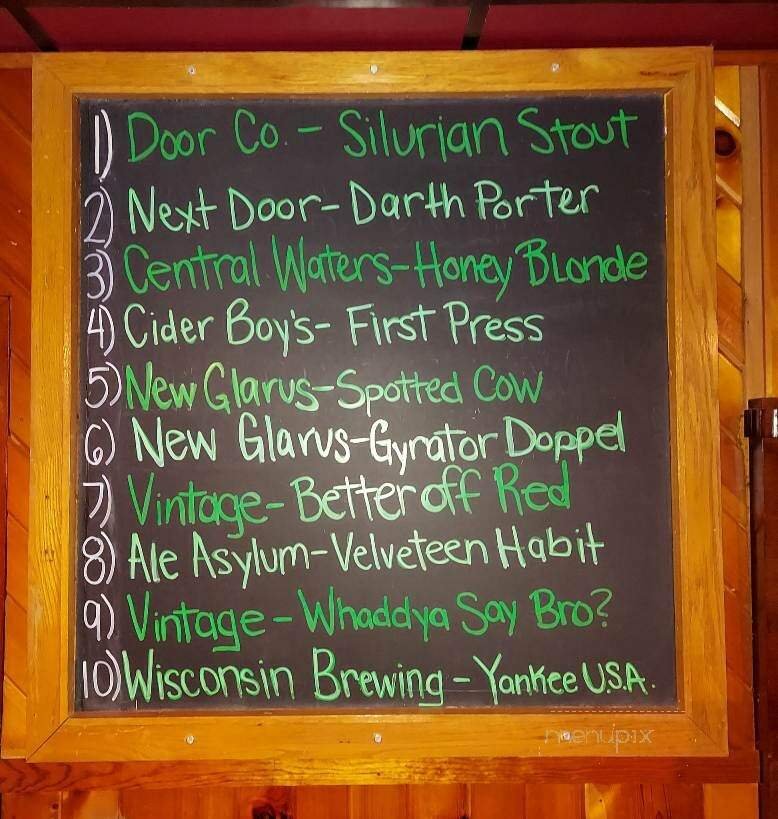 1) Door Co. - Silurian Stout
2) Next Door - Darth Porter
3) Central Waters - Honey Blonde
4) Cider Boy's - First Press
5) New Glarus - Spotted Cow
6) New Glarus - Gyrator Doppel
7) Vintage - Better off Red
8) Ale Asylum - Velveteen Habit
9) Vintage - Whaddya Say Bro?
10) Wisconsin Brewing - Yankee U.S.A.
menupix